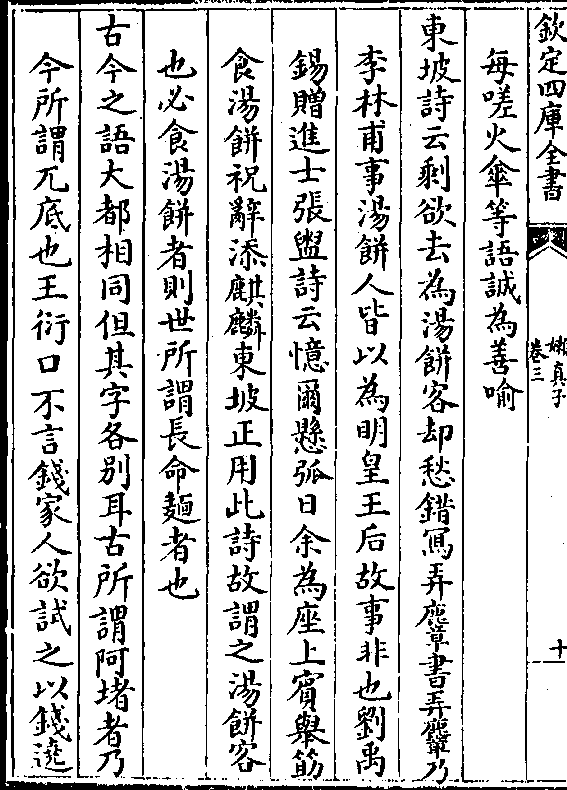 欽定四庫全書
嬾真子
卷三
十
每嗟火傘等語誠為善喻
東坡詩云剩欲去為湯餅客却愁錯冩弄麞書弄麞乃
李林甫事湯餅人皆以為明皇王后故事非也劉禹
錫贈進士張盥詩云憶爾懸弧日余為座上賓舉筯
食湯餅祝辭添麒麟東坡正用此詩故謂之湯餅客
也必食湯餅者則世所謂長命麵者也
古今之語大都相同但其字各别耳古所謂阿堵者乃
今所謂兀底也王衍口不言錢家人欲試之以錢遶